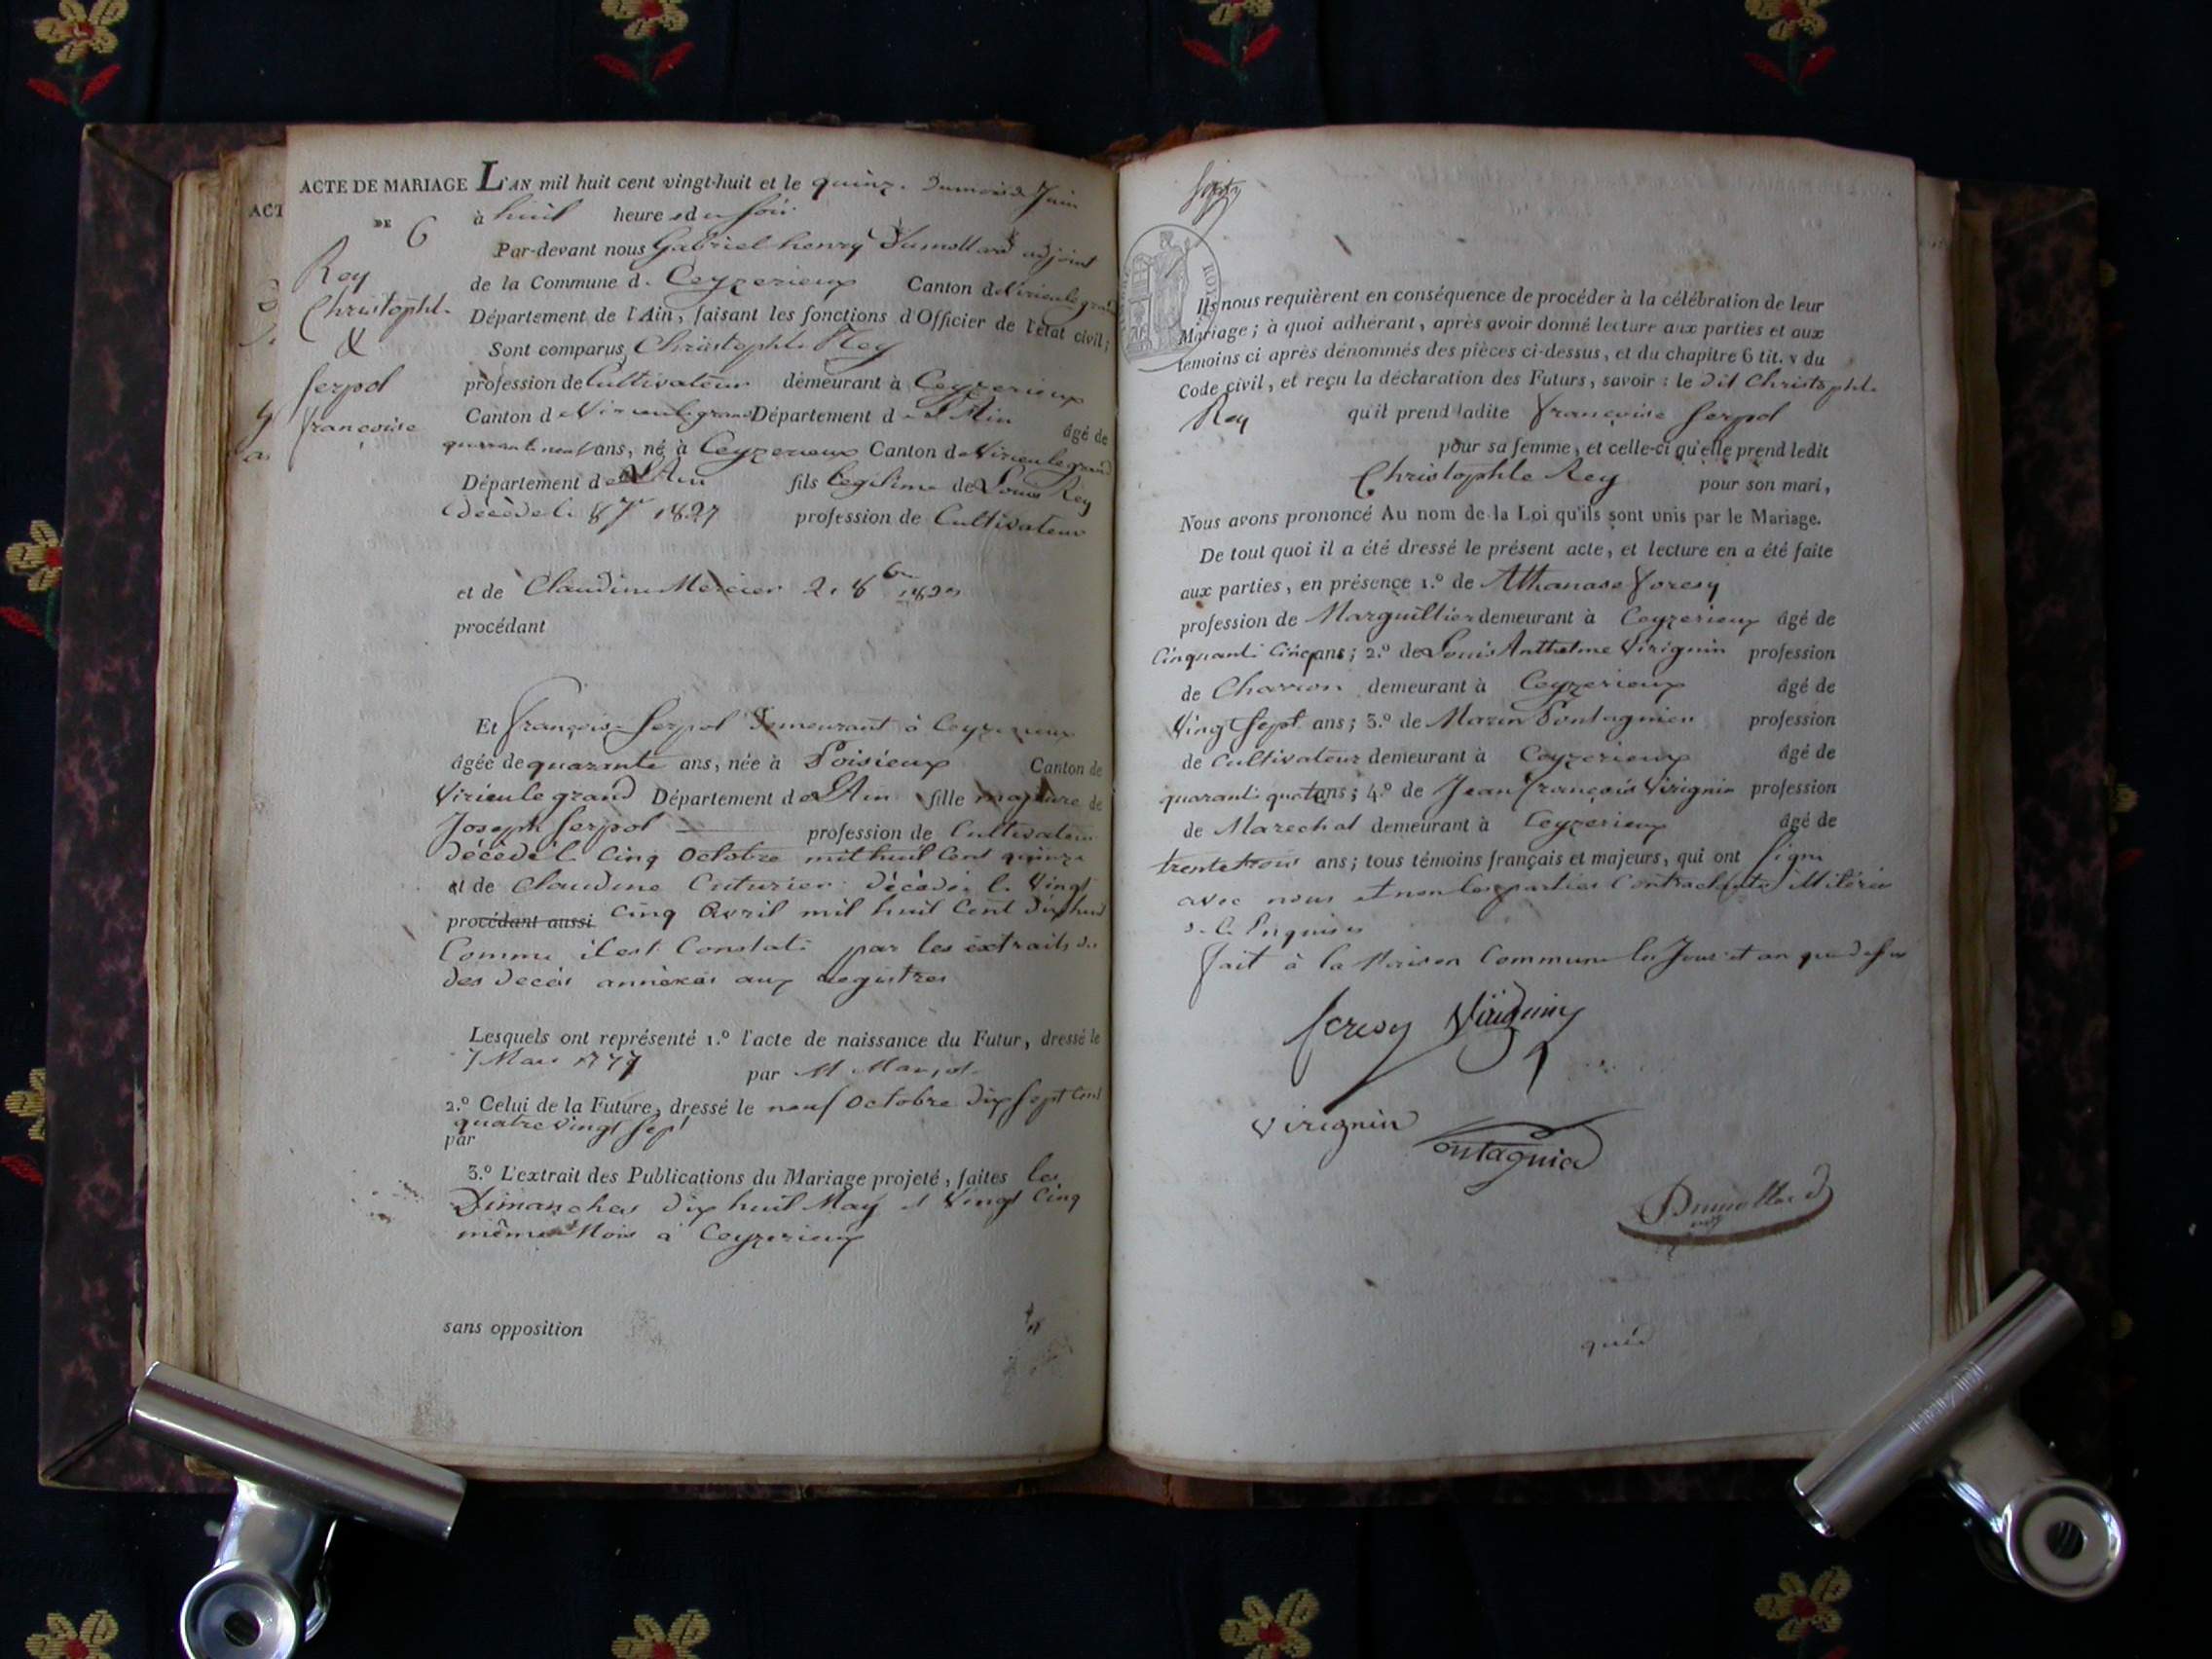 ACTE DE MARIAGE L'AN mil huit cent vingt-huit et le quinze du mois de Juin
ACT
DE 6 à huit heures du soir
Par-devant nous Gabriel henry Dumollard adjoint
Rey
de la Commune d. Ceyzerieux Canton de Virieulegrand
Christophle
Département de l'Ain, faisant les fonctions d'Officier de l'état civil;
&
Sont comparus Christophle Rey
Serpol
profession de Cultivateur demeurant à Ceyzerieux
françoise
Canton de Virieulegrand Département de L'Ain âgé de
quarante neuf ans, né à Ceyzerieux Canton de Virieulegrand
Département de L'Ain fils legitime de Louis Rey
décédé le 1827 profession de Cultivateur
et de Claudine Mercier
procédant
Et françoise Serpol demeurant à Ceyzerieux
âgée de quarante ans, née à Poisieux Canton de
Virieulegrand Département de L'Ain fille majeure de
Joseph Serpol profession de Cultivateur
décédé le cinq Octobre mil huit cent quinze
et de Claudine Cuturier décédée le Vingt
procédant aussi cinq Avril mil huit cent dix huit
Comme il est Constaté par les extraits de
des decès annéxés aux Registres
Lesquels ont représenté 1.º l'acte de naissance du Futur, dressé le
7 Mars 1779 par M
2.º Celui de la Future, dressé le neuf Octobre dix sept cent
quatre vingt sept
par
3.º L'extrait des Publications du Mariage projeté, faites les
Dimanches dix huit May et Vingt Cinq
même Mois à Ceyzerieux
sans opposition
ROY
Ils nous requièrent en conséquence de procéder à la célébration de leur
Mariage; à quoi adhérant, après avoir donné lecture aux parties et aux
témoins ci après dénommés des pièces ci-dessus, et du chapitre 6 tit. v du
Code civil, et reçu la déclaration des Futurs, savoir: le dit Christophle
Rey qu'il prend ladite françoise Serpol
pour sa femme, et celle-ci qu'elle prend ledit
Christophle Rey pour son mari,
Nous avons prononcé Au nom de la Loi qu'ils sont unis par le Mariage.
De tout quoi il a été dressé le présent acte, et lecture en a été faite
aux parties, en présence 1.º de Athanase foresy
profession de Marguillier demeurant à Ceyzerieux âgé de
Cinquante Cinq ans; 2.º de Louis Anthelme Virignin profession
de Charron demeurant à Ceyzerieux âgé de
Vingt Sept ans; 3.º de Marin Pontagnier profession
de Cultivateur demeurant à Ceyzerieux âgé de
quarante quatre ans; 4.º de Jean françois Virignin profession
de Marechal demeurant à Ceyzerieux âgé de
trente trois ans; tous témoins français et majeurs, qui ont signé
avec nous et non les parties Contractantes Illiterés
de ce Enquises
fait à la Maison Commune les Jour et an que dessus
foresy Virignin
Virignin
Pontagnier
Dumollard
adj